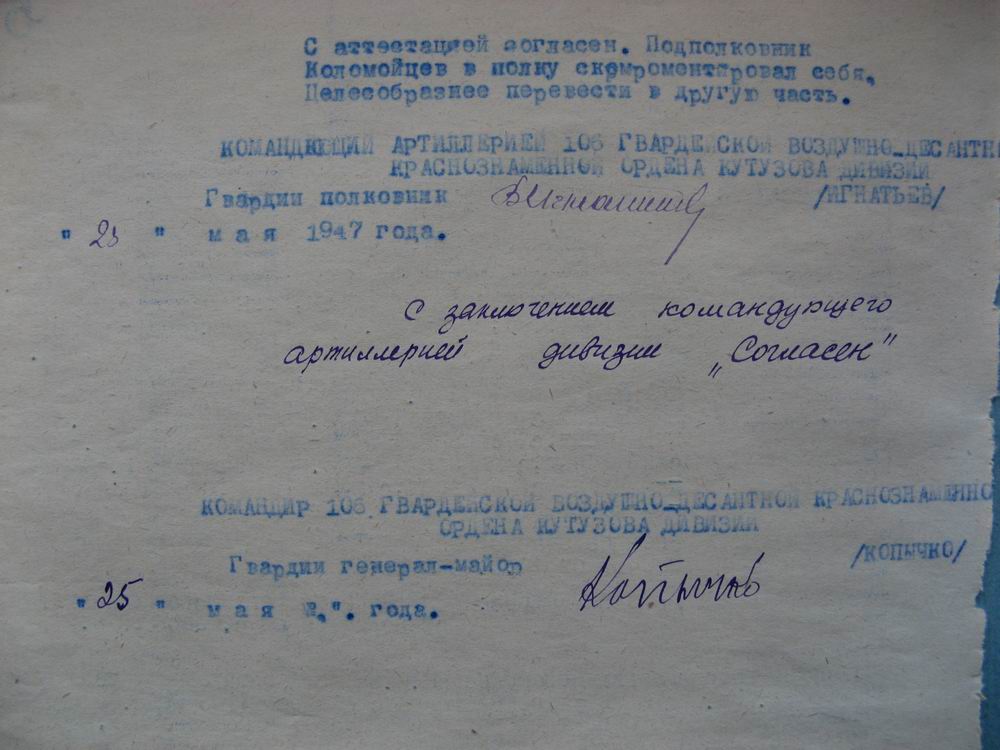 С аттестацией согласен. Подполковник
Коломойцев в полку скомроментировал себя,
Целесобразнее перевести в другую часть.
КОМАНДУЮЩИЙ АРТИЛЛЕРИЕЙ 106 ГВАРДЕЙСКОЙ ВОЗДУШНО_ДЕСАНТН
КРАСНОЗНАМЕННОЙ ОРДЕНА КУТУЗОВА ДИВИЗИИ
Гвардии полковник /ИГНАТЬЕВ/
" " мая 1947 года.
С заключением командующего
артиллерией дивизии „Согласен"
КОМАНДИР 106 ГВАРДЕЙСКОЙ ВОЗДУШНО_ДЕСАНТНОЙ КРАСНОЗНАМЕННО
ОРДЕНА КУТУЗОВА ДИВИЗИИ
Гвардии генерал-майор Копычко /КОПЫЧКО/
" 25 " мая года.